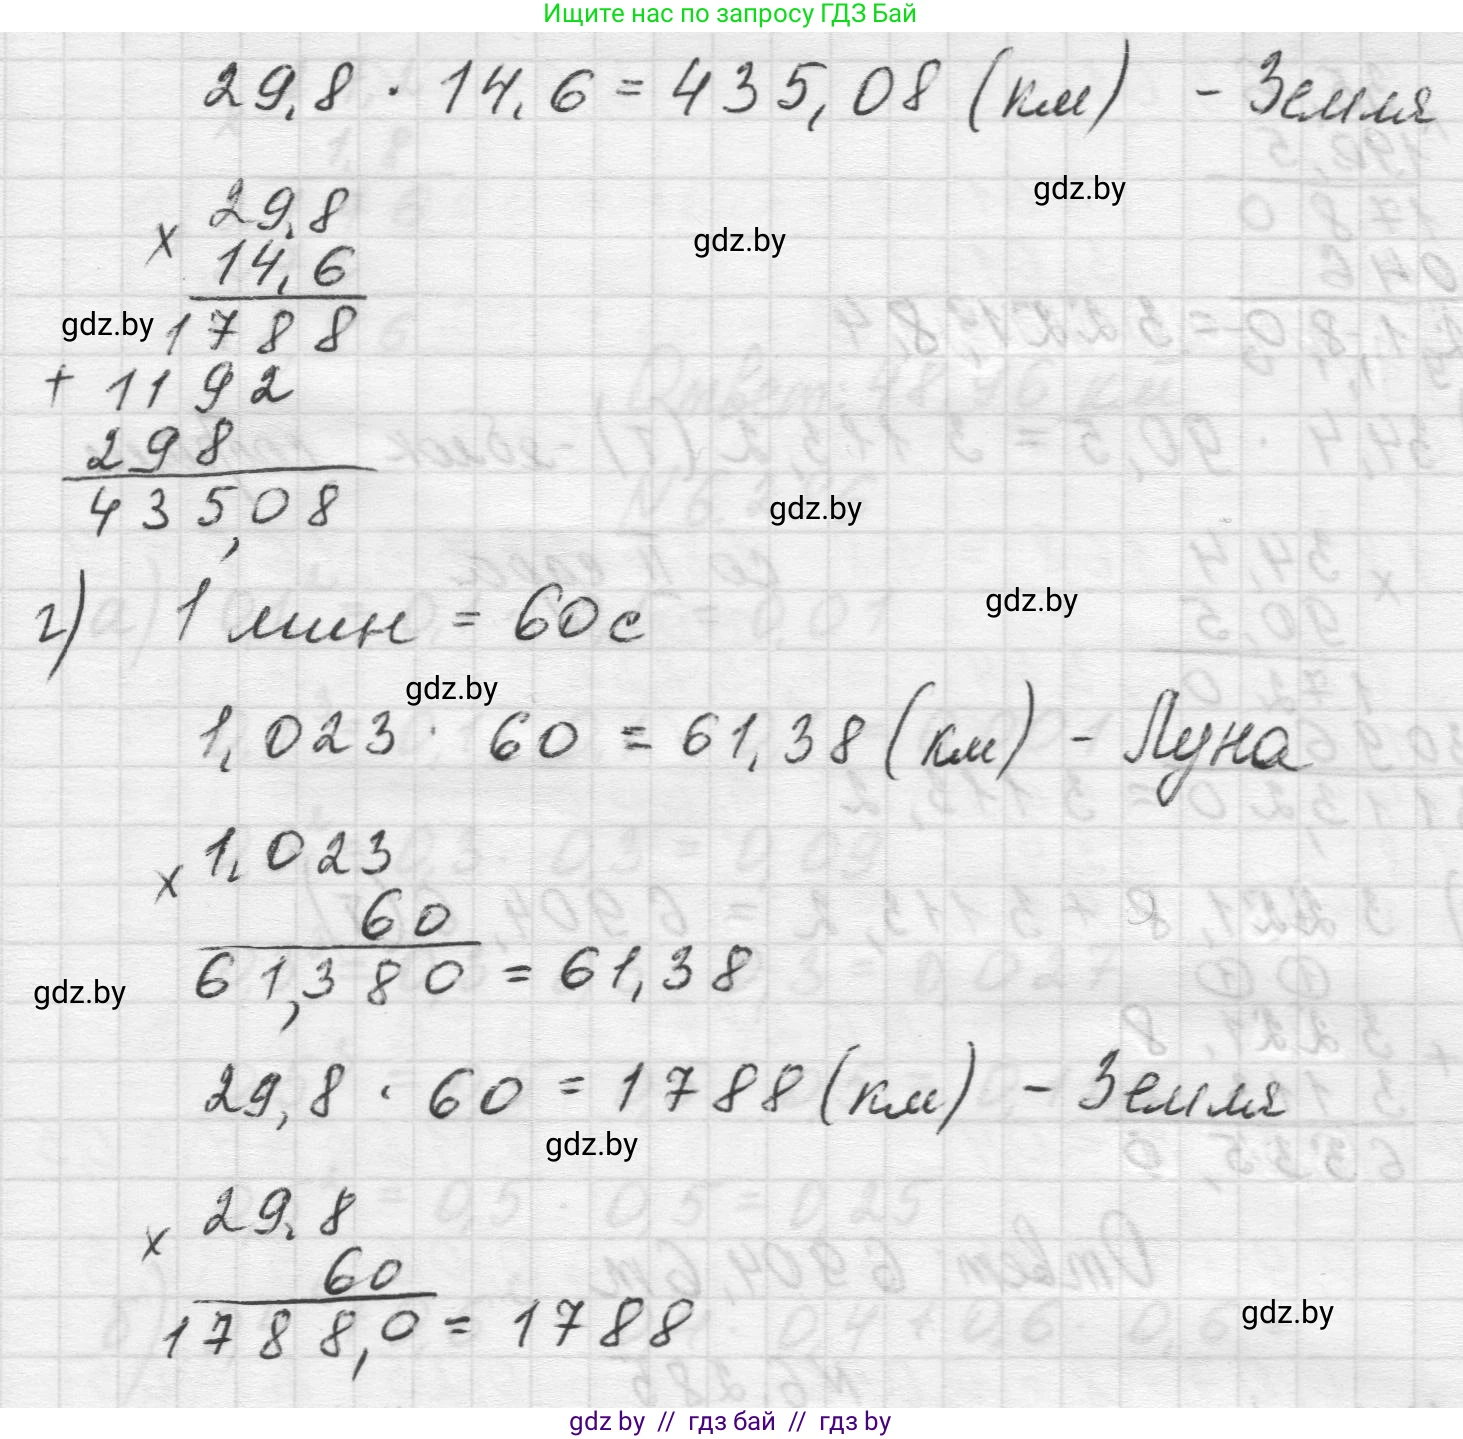 Ищите нас по запросу ГДЗ Бай
29,8 · 14,6 = 435,08 (км) - Земля
gdz.by
29,8
gdz.by
x
14,6
gdz.by
1788
+ 1192
298
435,08
gdz.by
г) 1 мин = 60 с
gdz.by
gdz.by
1,023 · 60 = 61,38 (км) - Луна
1,023
x
60
61,380 = 61,38
gdz.by
29,8 · 60 = 1788 (км) - Земля
gdz.by
29,8
x
60
1788,0 = 1788
gdz.by
gdz by // гдз бай // гдз by